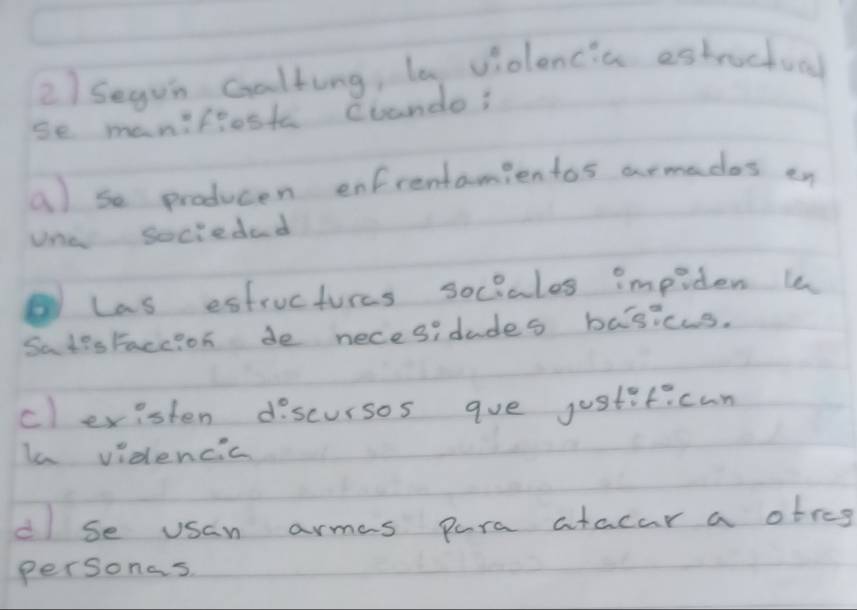 2) Segun Galtung, la violencia estructural
se manifiesta cuando:
a) se producen enfrentamientos armados en
una sociedad
b) Las estructuras sociales impiden la
Satisfaccion de necesidades básicas.
c) existen discursos que justifican
la violencia
d) Se usan armas para atacar a otras
personas.